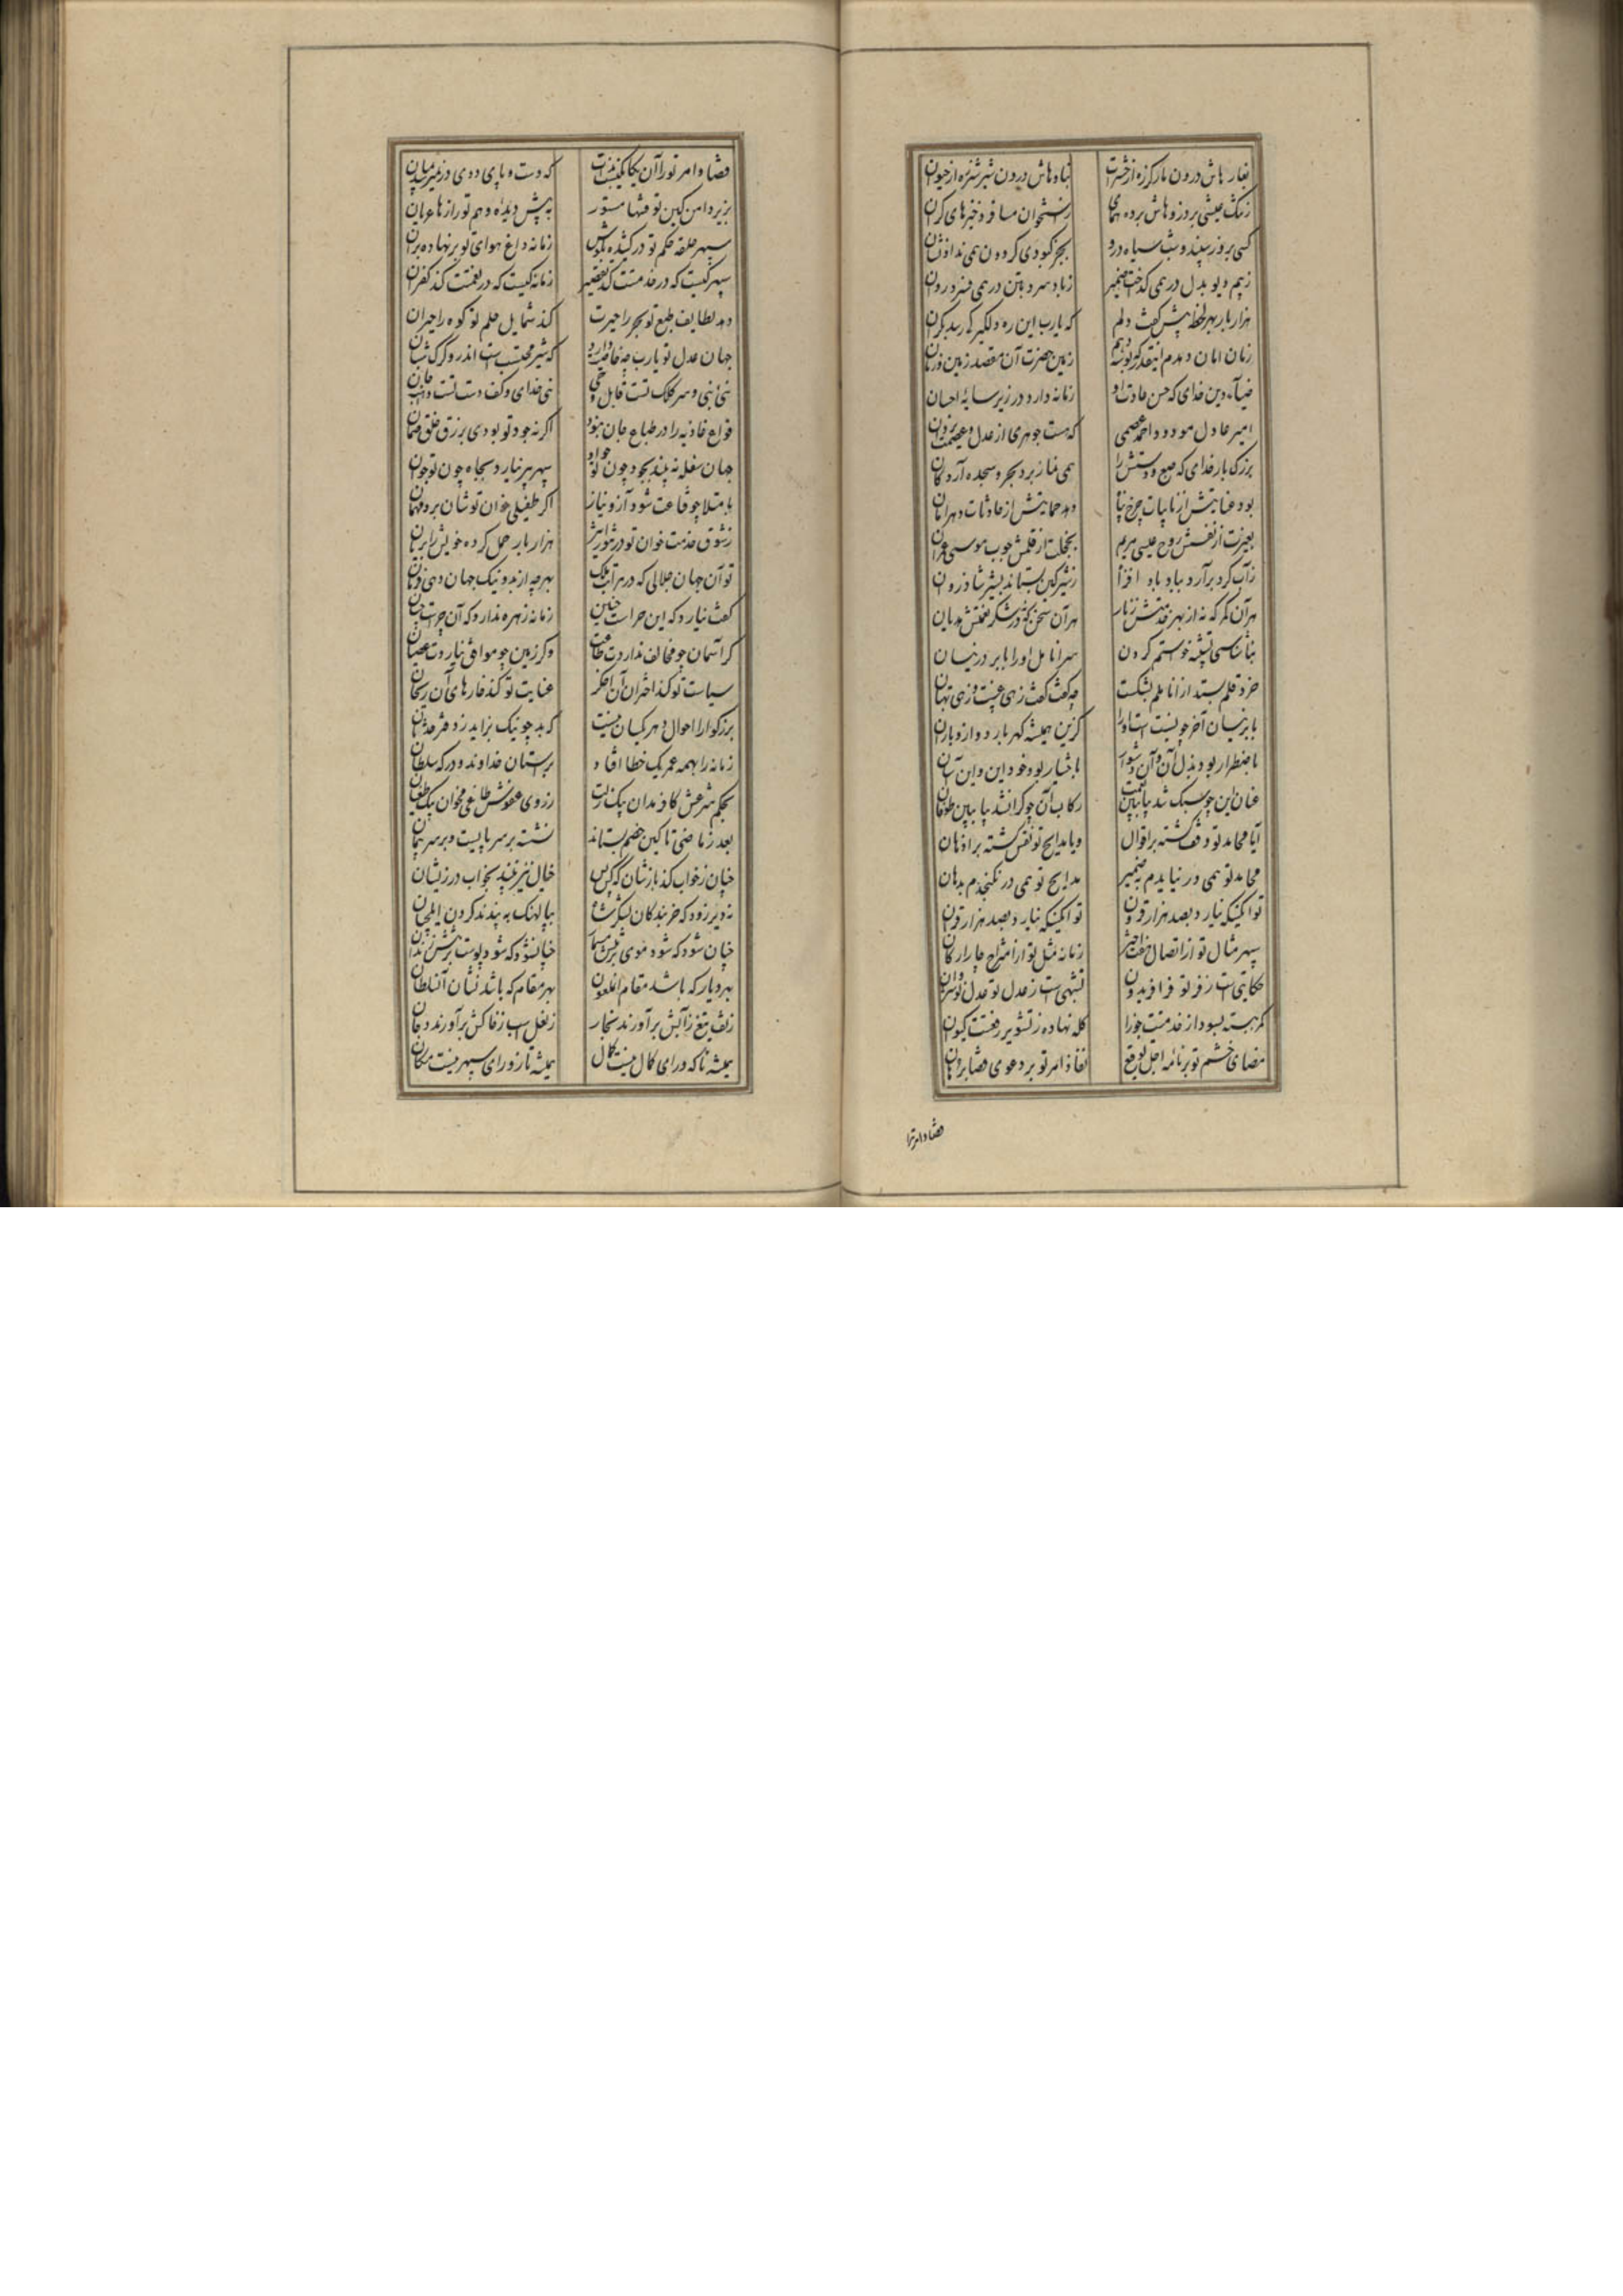 بغار هاش درون مار کرزه از خشرات نیاه هاش درون شیر شرزه از حیوان
زسنک عیشی بر دز و هاش برده همای ز استخوان مسافر ذخیرهای کران
کسی بروز سپید و شب سیاه درو بجز کبودی کردون همی نداد نشان
ز بیم دیو بدل در همی کداخت ضمیر ز باد سرد بتن در همی فسرد روان
هزار بار بهر لحظه پیش کفت دلم که یارب این ره دلکیر کی رسد بکران
زمان امان دهدم اینقدر که بوسه دهم زمین حضرت آن مقصد زمین و زمان
ضیآء دین خدای که حسن عادت او زمانه دارد در زیر سایهٔ احسان
امیر عادل مودود احمد عصمی که هست جوهری از عدل و عصمت یزدان
بزرک بار خدای که طبع و دستش را همی نماز برد بحر و سجده آرد کان
بود عنایتش از نایبات چرخ پناه دهد حمایتش از حادثات دهر امان
بغیرت از نفسش روح عیسی مریم بخجلت از قلمش چوب موسی عمران
ز آب کرد برآرد بباد باد افراه ز شیر کین بستاند بشیر شادروان
هر آن کمر که نه از بهر خدمتش زنار هر آن سخن که نه در شکر نعمتش هذیان
بناشناسی تشبیه خواستم کردن سر انامل او را بابر در نیسان
خرد قلم بستد از اناملم بشکست چه کفت کفت زهی غیبت و زهی بهتان
بابر نیسان آخر چه نسبت است او را کزین همیشه کهر بارد و ازو باران
باضطرار بود بذل آن و آن دشوار باختیار بود جود این و این آسان
عنان این چو سبک شد بیا ببین نعمت رکاب آن چو کران شد بیا ببین طوفان
آیا محامد تو وقف کشته بر اقوال ویا مدایح تو نقش کشته بر اذهان
محامد تو همی در نیایدم بضمیر مدایح تو همی در نکنجدم بدهان
تو آنکسیکه نیارد بصد هزار قرون تو آنکسیکه نیارد بصد هزار قران
سپهر مثال تو از اتصال هفت اختر زمانه مثل تو از امتزاج چار ارکان
حکایتی است ز فر تو فر افریدون تشبهی است ز عدل تو عدل نوشروان
کمر بسته بسوداء خدمتت جوزا کله نهاده ز تشویر رفعتت کیوان
مضای خشم تو بر نامهٔ اجل توقیع نفاذ امر تو بر دعوی قضا برهان
قضا و امر ترا
قضا و امر تو را آن یکانکیست که دست و پای دوی در نمیرسد بمیان
بزیر دامن کین تو فتنها مستور به پیش دیده وهم تو رازها عریان
سپهر حلقه حکم تو در کشیده بکوش زمانه داغ هوای تو بر نهاده بران
سپهر کیست که در خدمتت کند تقصیر زمانه کیست که در نعمتت کند کفران
دهد لطایف طبع تو بحر را حیرت کند شمایل حلم تو کوه را حیران
جهان عدل تو یارب چه خاصیت دارد که شیر محتسب است اندر و کرک شبان
نئی نبی و سر کلک تست قابل وحی نئی خدای و کف دست تست واهب جان
قواء غاذیه را در طباع جان نبود اکر نه جود تو بودی برزق خلق ضمان
جهان سفله نه بیند بجود چون تو جواد سپهر پیر نیارد بجاه چون تو جوان
بامتلا چو قناعت شود آز و نیاز اکر طفیلی خوان تو شان برد مهمان
ز شوق خدمت خوان تو در تنور اثیر هزار بار حمل کرده خویش را بریان
تو آن جهان جلالی که در مراتب ملک بهرچه از بد و نیک جهان دهی فرمان
کفت نیارد که این چراست چنین زمانه زهره ندارد که آن چراست چنان
کر آسمان چو مخالف ندار دت طاعت وکر زمین چو موافق نیاردت عصیان
سیاست تو کند اختران آن اخکر عنایت تو کند خارهای آن ریحان
بزرکوارا احوال دهر یکسان نیست که بد چو نیک نزاید ز دفتر حدثان
زمانه را بهمه عمر یک خطا افتاد بر آستان خداوند و درکه سلطان
بحکم شرعش کافر مدان بیک زلت ز روی عفوش طاغی مخوان بیک طغیان
بعد زماضی تا کین خصم بستاند نشسته بر سر پایست و بر سر پیمان
چنان ز خواب کند بازشان که کس خیال نیز نبیند بخواب در زیشان
نه دیر زود که خر بندکان لشکر شاه بپالهنک به بندند کردن ایلچیان
چنان شود که شود موی بر تنش مسمار چنان شود که شود پوست بر تنش زندان
بهر دیار که باشد مقام آن ملعون بهر مقام که باشد نشان آن سلطان
ز تف تیغ ز آبش بر آورند بخار ز نعل اسب ز خاکش بر آورند دخان
همیشه تا که ورای کمال نیست کمال همیشه تا ز ورای سپهر نیست مکان